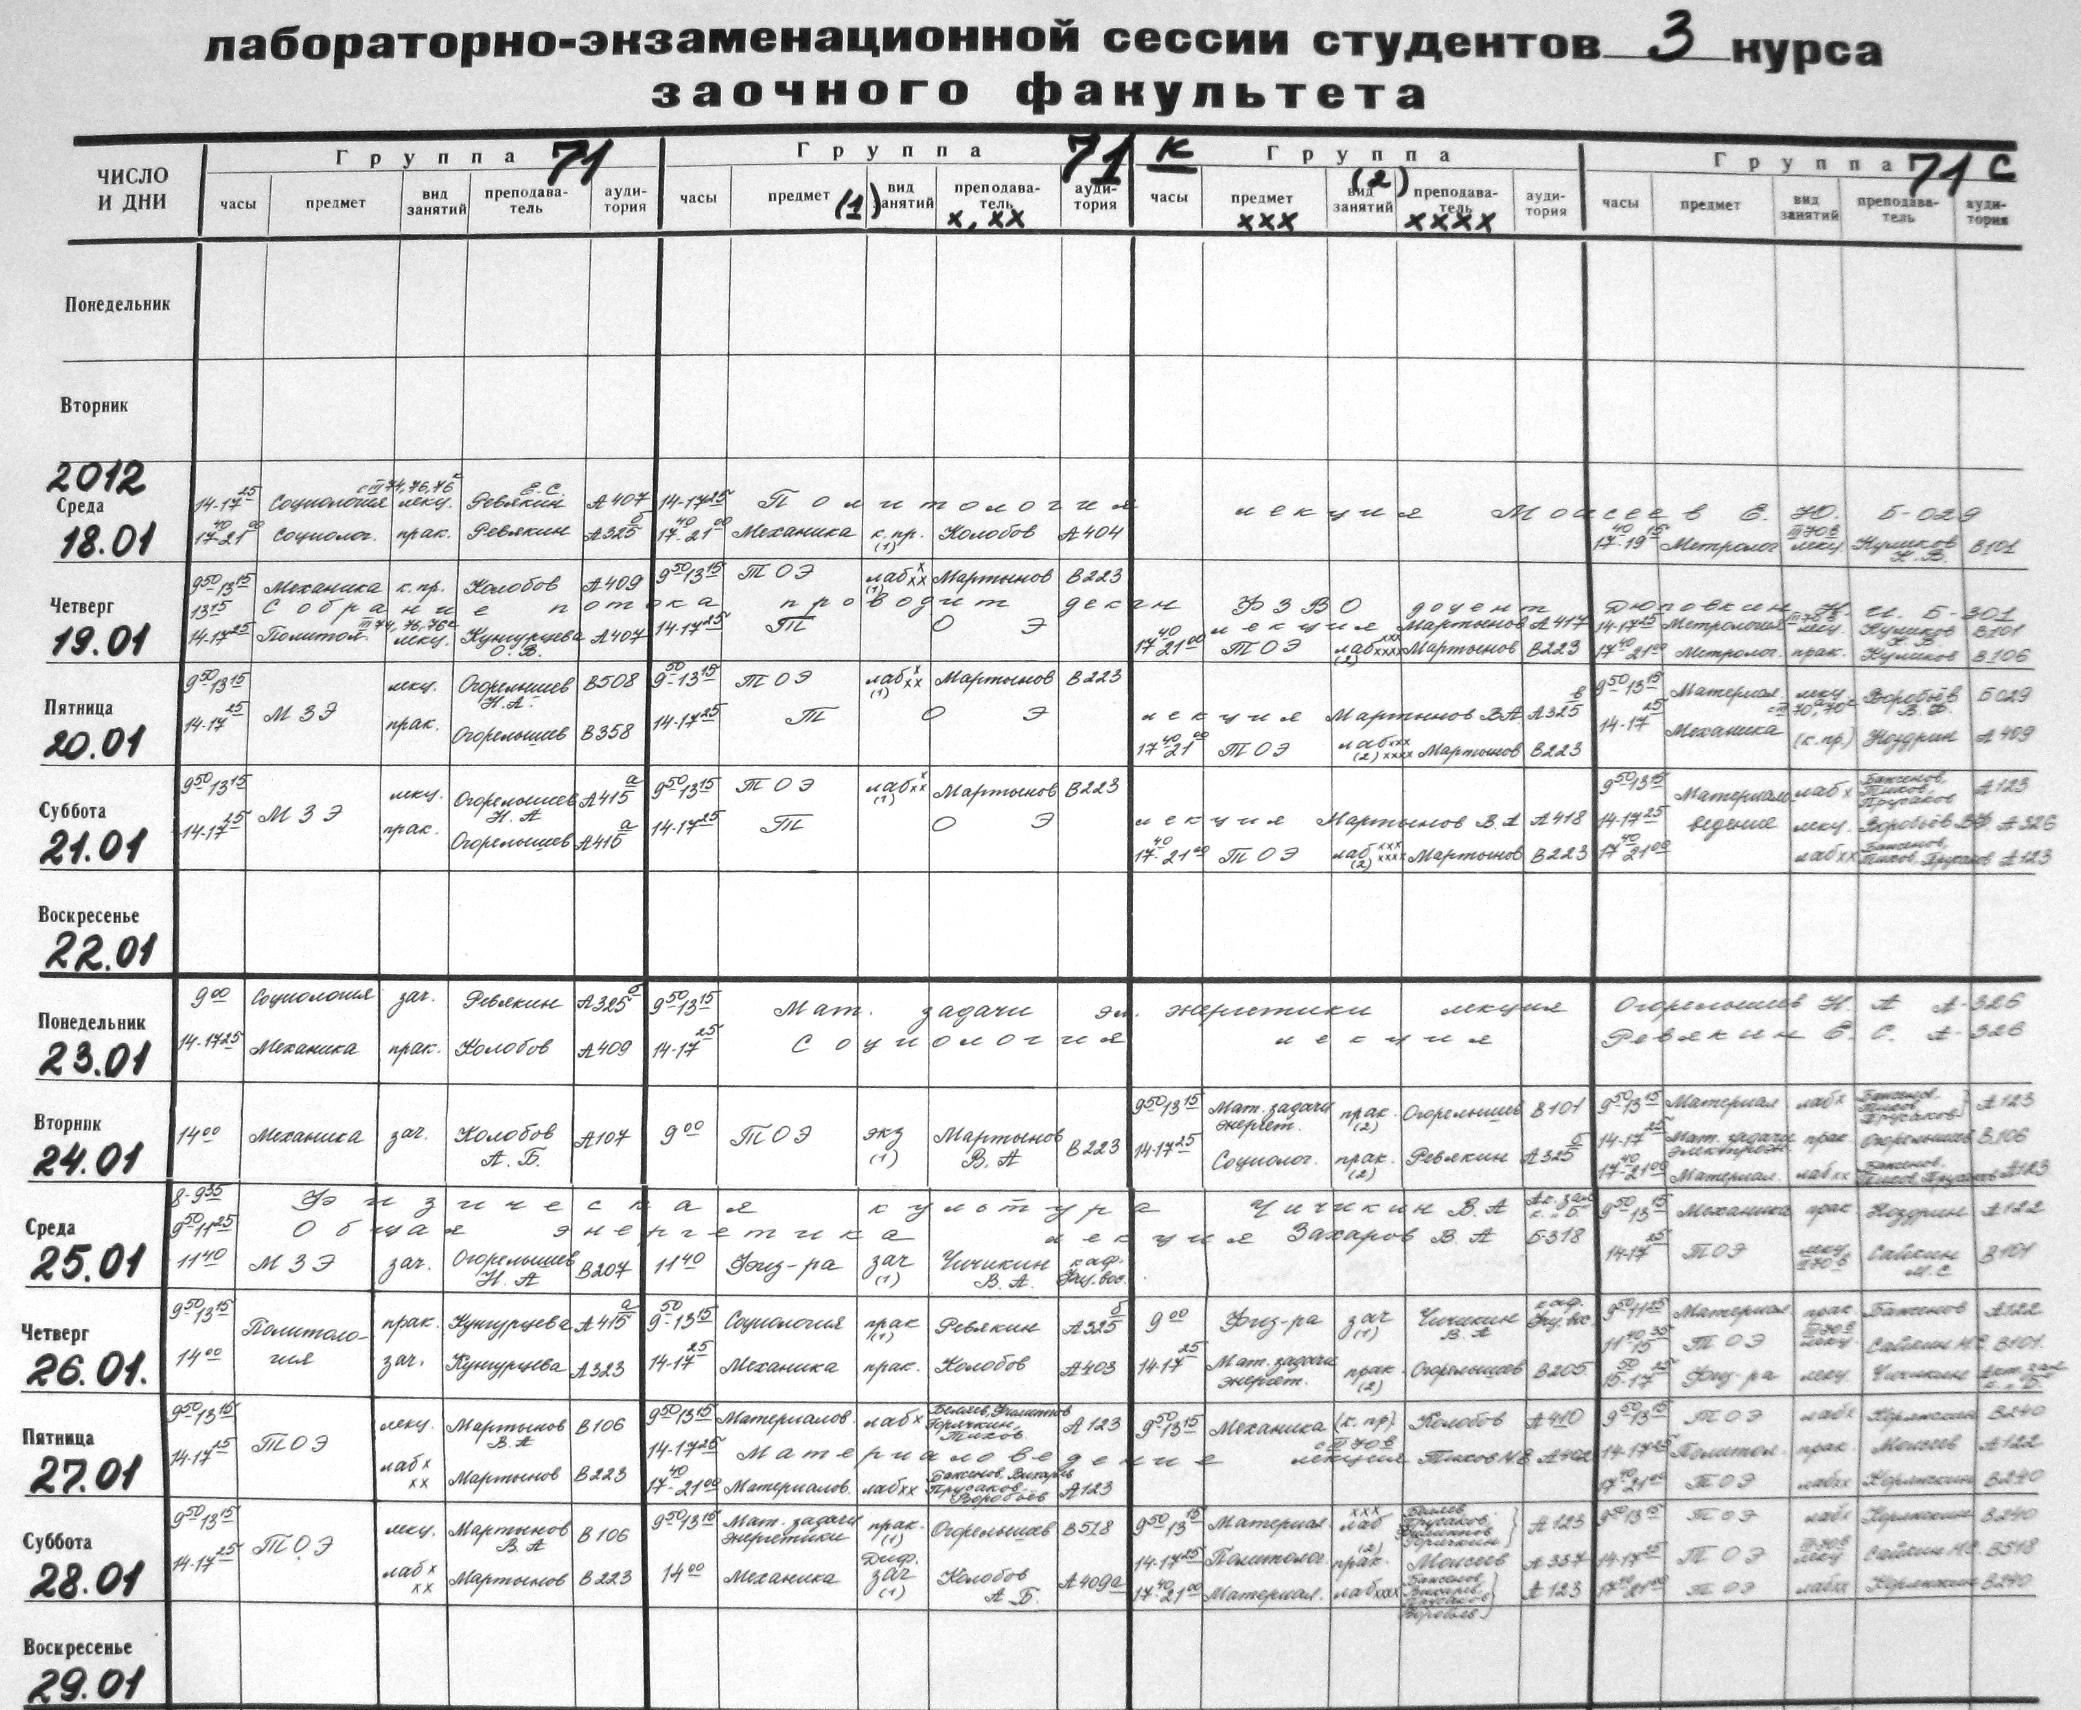 лабораторно-экзаменационной сессии студентов 3 курса
заочного факультета
ЧИСЛО И ДНИ
Группа 71
Группа 71 К
Группа
Группа 71 С
часы предмет вид занятий преподаватель аудитория
часы предмет (1) вид занятий преподаватель x, xx аудитория
часы предмет xxx (2) вид занятий преподаватель xxxx аудитория
часы предмет вид занятий преподаватель аудитория
Понедельник
Вторник
2012
Среда
18.01
14-17 25 Социология с III 74, 76, 76с лекц. Ревякин Е.С. А407
14-17 25 Политология лекция Моисеев Е. Ю. Б-029
17 40-21 00 Социолог. прак. Ревякин А325б
17 40-21 00 Механика к.пр. (1) Колобов А404
17 40-19 15 Метролог III 70в лекц Куликов К.В. В101
Четверг
19.01
9 50-13 15 Механика к.пр. Колобов А409
9 50-13 15 ТОЭ лаб x xx (1) Мартынов В223
13 15 Собрание потока проводит декан ФЗВО доцент Дюповкин Н. И. Б-301
14-17 25 Политол. III 74, 76, 76с лекц. Кунгурцева О.В. А407
14-17 25 ТОЭ лекция Мартынов А417
14-17 25 Метрология III 70в лекц Куликов К.В. В101
17 40-21 00 ТОЭ лаб xxx xxxx (2) Мартынов В223
17 40-21 00 Метролог. прак. Куликов В106
Пятница
20.01
9 50-13 15 МЗЭ лекц. Огорелышев Н.А. В508
9 50-13 15 ТОЭ лаб x xx (1) Мартынов В223
9 50-13 15 Материал. лекц. с III 70а, 70с Воробьёв В.Ф. Б029
14-17 25 прак. Огорелышев В358
14-17 25 ТОЭ лекция Мартынов В.А А325в
14-17 25 Механика (к.пр) Ноздрин А409
17 40-21 00 ТОЭ лаб xxx (2) xxxx Мартынов В223
Суббота
21.01
9 50-13 15 МЗЭ лекц. Огорелышев Н.А А415а
9 50-13 15 ТОЭ лаб x xx (1) Мартынов В223
9 50-13 15 Материало- лаб x Баженов, Тихов, Прусаков А123
14-17 25 прак. Огорелышев А415а
14-17 25 ТОЭ лекция Мартынов В.А А418
14-17 25 ведение лекц. Воробьёв ВФ А326
17 40-21 00 ТОЭ лаб xxx xxxx (2) Мартынов В223
17 40-21 00 лаб xx Баженов, Тихов, Прусаков А123
Воскресенье
22.01
Понедельник
23.01
9 00 Социология зач. Ревякин А325б
9 50-13 15 Мат. задачи эл. энергетики лекция Огорелышев Н. А А-326
14-17 25 Механика прак. Колобов А409
14-17 25 Социология лекция Ревякин Е. С. А-326
Вторник
24.01
14 00 Механика зач. Колобов А.Б. А107
9 00 ТОЭ экз (1) Мартынов В.А В223
9 50-13 15 Мат. задачи энергет. прак. (2) Огорелышев В101
9 50-13 15 Материал лаб x Баженов, Тихов, Прусаков А123
14-17 25 Социолог. прак. (2) Ревякин А325б
14-17 25 Мат. задачи прак. Огорелышев В106
17 40-21 00 Материал. лаб xx Баженов, Тихов, Прусаков А123
Среда
25.01
8-9 35 Физическая культура Чичикин В.А Ак. зал к. "Б"
9 50-11 25 Общая энергетика лекция Захаров В. А Б318
9 50-13 15 Механика прак Ноздрин А122
11 40 МЗЭ зач. Огорелышев Н.А В207
11 40 Физ-ра зач (1) Чичикин В.А. каф. Физ. вос.
14-17 25 ТОЭ лекц III 70в Сайкин М.С В101
Четверг
26.01.
9 50-13 15 Политоло- прак. Кунгурцева А415а
9 50-13 15 Социология прак (1) Ревякин А325б
9 00 Физ-ра зач (1) Чичикин В.А каф. Физ. вос
9 50-11 25 Материал прак Баженов А122
11 40-15 35 ТОЭ III 70в лекц Сайкин МС В101.
14 00 гия зач. Кунгурцева А323
14-17 25 Механика прак. Колобов А403
14-17 25 Мат. задачи энергет. прак (2) Огорелышев В205
15 50-17 25 Физ-ра лекц. Чичикин Акт. зал к. "Б"
Пятница
27.01
9 50-13 15 ТОЭ лекц. Мартынов В.А В106
9 50-13 15 Материалов. лаб x Беляев, Филиппов, Горячкин, Тихов А123
9 50-13 15 Механика (к.пр). Колобов А410
9 50-13 15 ТОЭ лаб x В240
14-17 25 лаб x xx Мартынов В223
14-17 25 Материаловедение с III 70в лекция Тихов А402
14-17 25 Политол. прак. Моисеев А122
17 40-21 00 Материалов. лаб xx Баженов, Вихарев, Прусаков, Воробьёв А123
17 40-21 00 ТОЭ лаб xx В240
Суббота
28.01
9 50-13 15 ТОЭ лекц. Мартынов В.А В106
9 50-13 15 Мат. задачи энергетики прак. (1) Огорелышев В518
9 50-13 15 Материал. xxx лаб (2) Беляев, Прусаков, Филиппов, Горячкин А123
9 50-13 15 ТОЭ лаб x В240
14-17 25 лаб x xx Мартынов В223
14 00 Механика Диф. зач (1) Колобов А.Б. А409а
14-17 25 Политолог. прак. Моисеев А337
14-17 25 ТОЭ III 70в лекц Сайкин МС В518
17 40-21 00 Материал. лаб xxxx Баженов, Вихарев, Прусаков, Воробьёв А123
17 40-21 00 ТОЭ лаб xx В240
Воскресенье
29.01